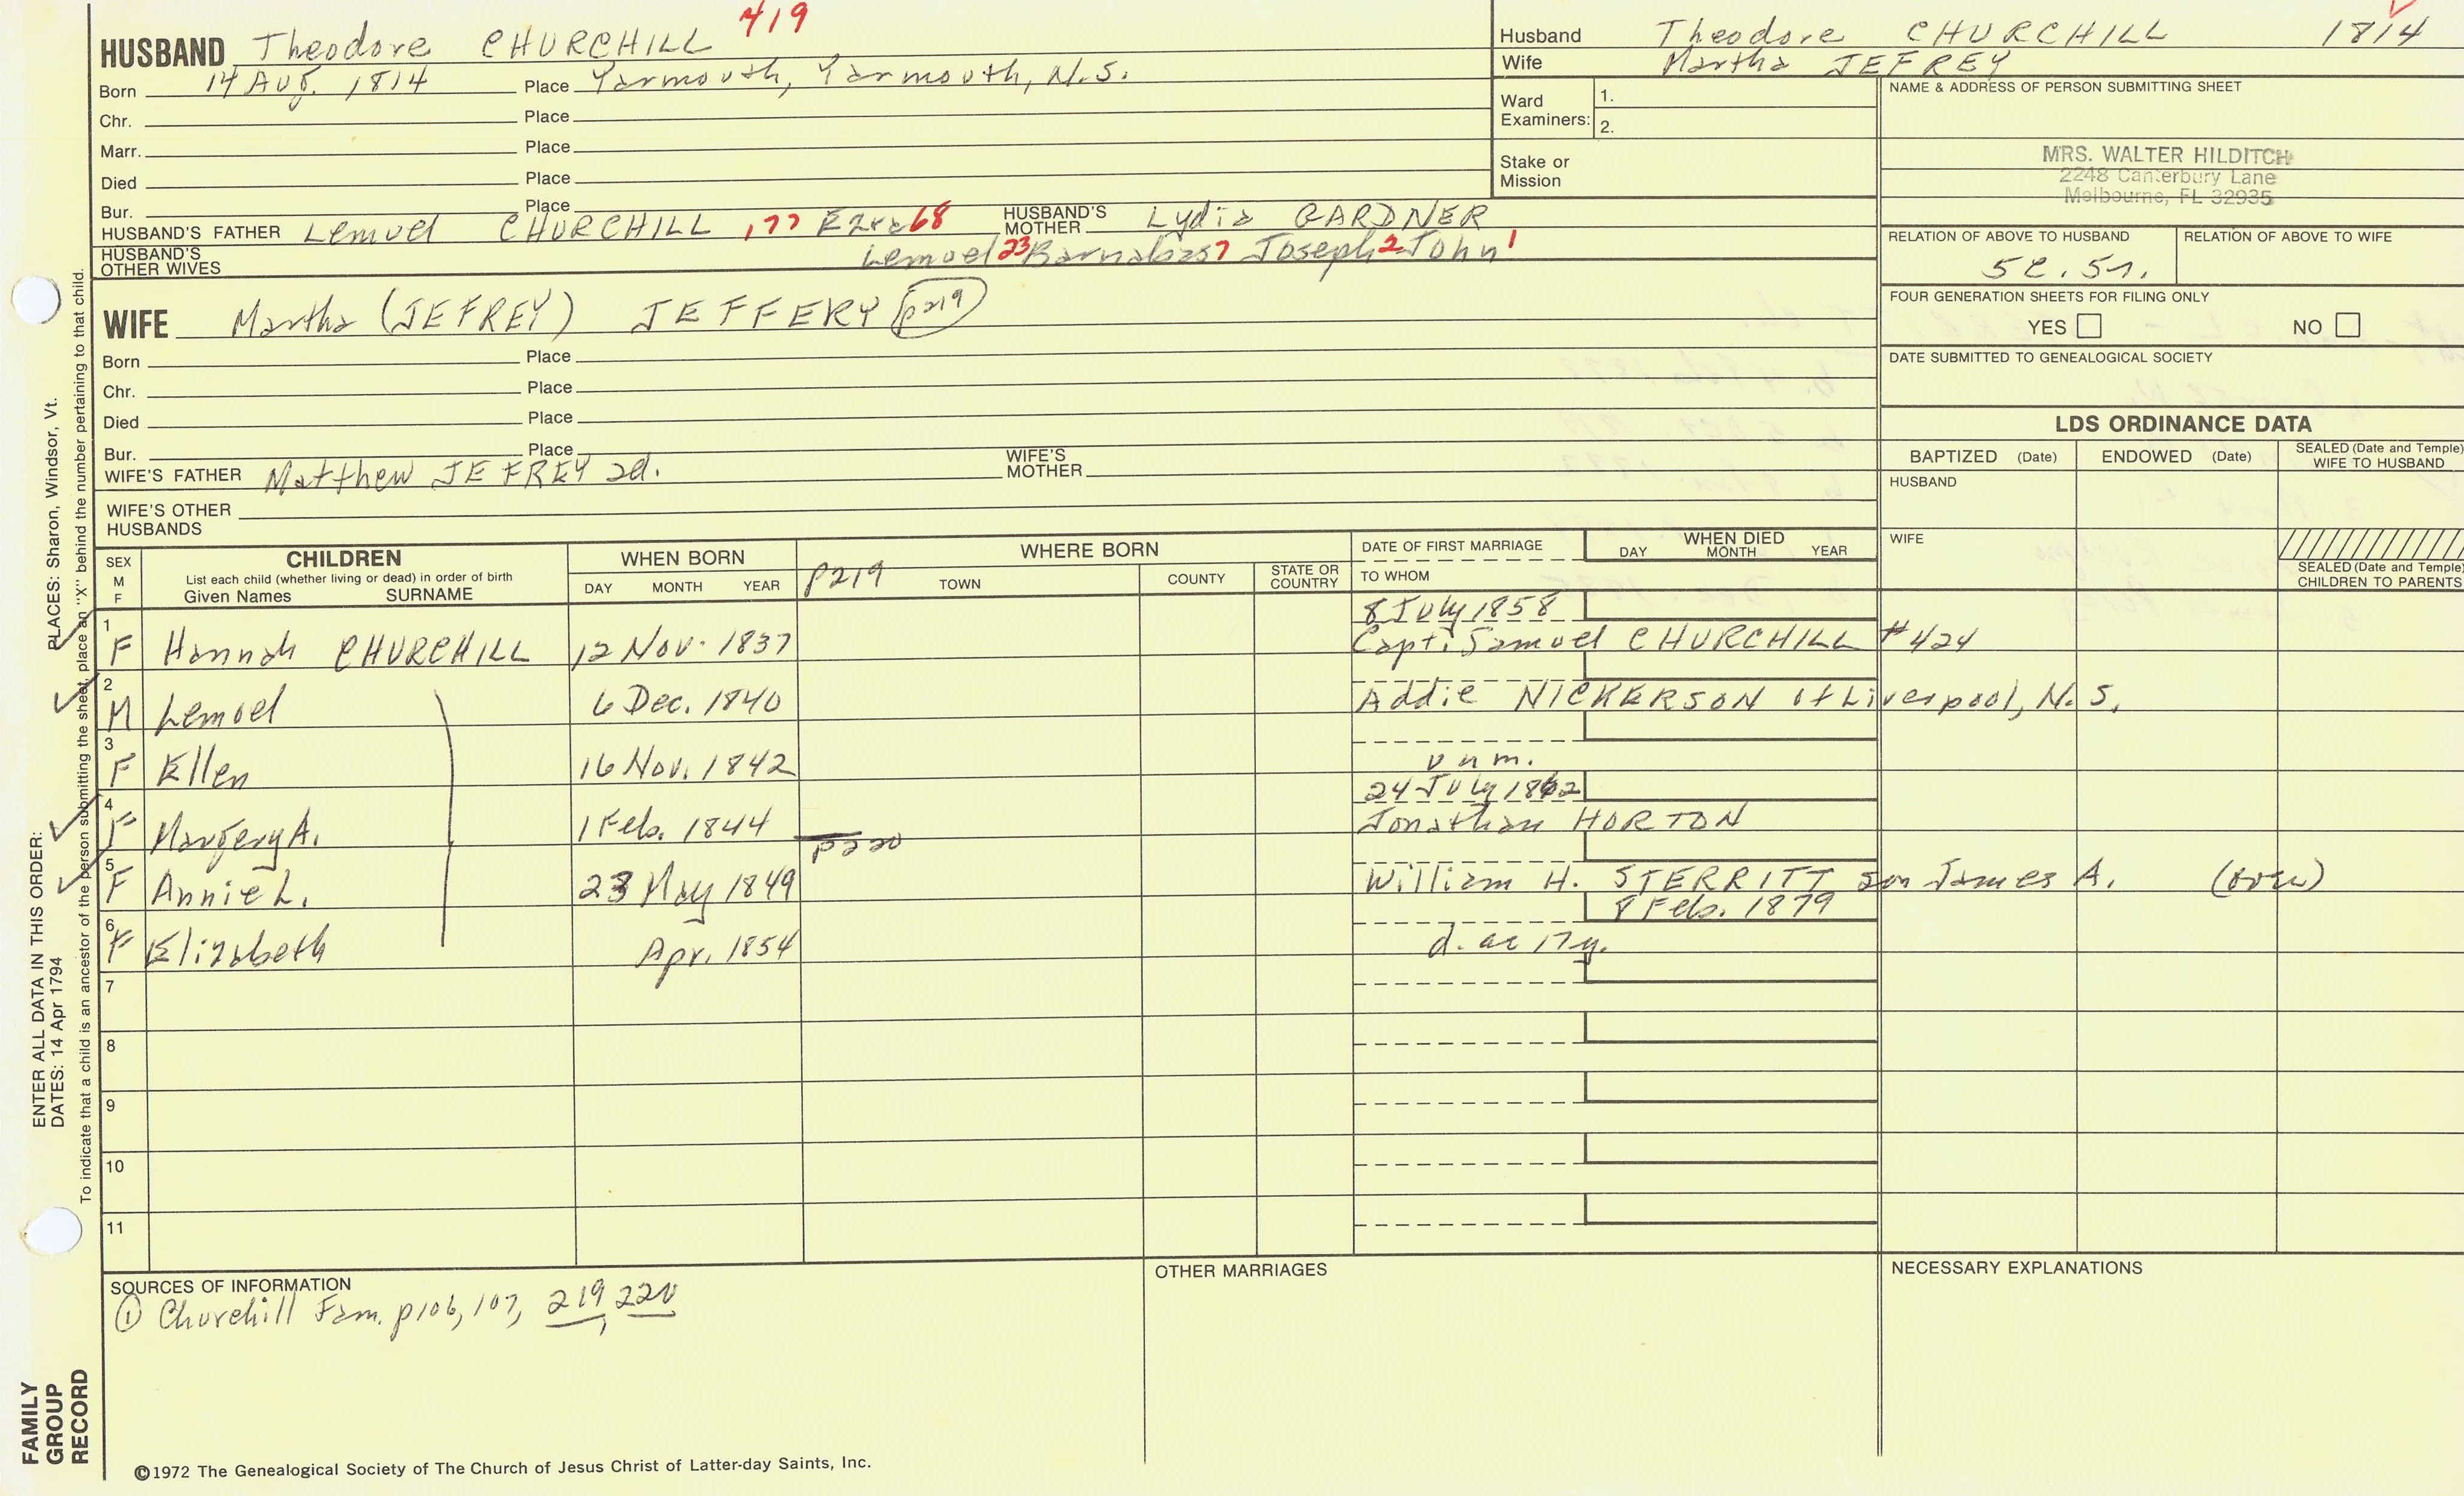 HUSBAND Theodore CHURCHILL 419
Born 14 Aug. 1814 Place Yarmouth, Yarmouth, N.S.
Chr. Place
Marr. Place
Died Place
Bur. Place
HUSBAND'S FATHER Lemuel CHURCHILL 177 Ezra 68 HUSBAND'S MOTHER Lydia GARDNER
HUSBAND'S OTHER WIVES Lemuel 23 Barnabas 7 Joseph 2 John 1
WIFE Martha (JEFREY) JEFFERY p219
Born Place
Chr. Place
Died Place
Bur. Place
WIFE'S FATHER Matthew JEFREY 2d. WIFE'S MOTHER
WIFE'S OTHER HUSBANDS
Husband Theodore CHURCHILL 1814
Wife Martha JEFREY
Ward Examiners: 1.
2.
Stake or Mission
NAME & ADDRESS OF PERSON SUBMITTING SHEET
MRS. WALTER HILDITCH
2248 Canterbury Lane
Melbourne, FL 32935
RELATION OF ABOVE TO HUSBAND RELATION OF ABOVE TO WIFE
5c. 5r.
FOUR GENERATION SHEETS FOR FILING ONLY
YES NO
DATE SUBMITTED TO GENEALOGICAL SOCIETY
LDS ORDINANCE DATA
BAPTIZED (Date) ENDOWED (Date) SEALED (Date and Temple) WIFE TO HUSBAND
HUSBAND
WIFE
SEALED (Date and Temple) CHILDREN TO PARENTS
SEX M F CHILDREN WHEN BORN WHERE BORN DATE OF FIRST MARRIAGE WHEN DIED
List each child (whether living or dead) in order of birth
Given Names SURNAME DAY MONTH YEAR p219 TOWN COUNTY STATE OR COUNTRY TO WHOM DAY MONTH YEAR
8 July 1858
1 F Hannah CHURCHILL 12 Nov. 1837 Capt. Samuel CHURCHILL #424
2 M Lemuel 6 Dec. 1840 Addie NICKERSON of Liverpool, N.S.
3 F Ellen 16 Nov. 1842 unm.
24 July 1862
4 F Margery A. 1 Feb. 1844 Jonathan HORTON
p220
5 F Annie L. 23 May 1849 William H. STERRITT son James A. (over)
8 Feb. 1879
6 F Elizabeth Apr. 1854 d. ae 17y.
7
8
9
10
11
SOURCES OF INFORMATION
① Churchill Fam. p106, 107, 219, 220
OTHER MARRIAGES
NECESSARY EXPLANATIONS
©1972 The Genealogical Society of The Church of Jesus Christ of Latter-day Saints, Inc.
FAMILY GROUP RECORD
ENTER ALL DATA IN THIS ORDER:
DATES: 14 Apr 1794
PLACES: Sharon, Windsor, Vt.
To indicate that a child is an ancestor of the person submitting the sheet, place an "X" behind the number pertaining to that child.